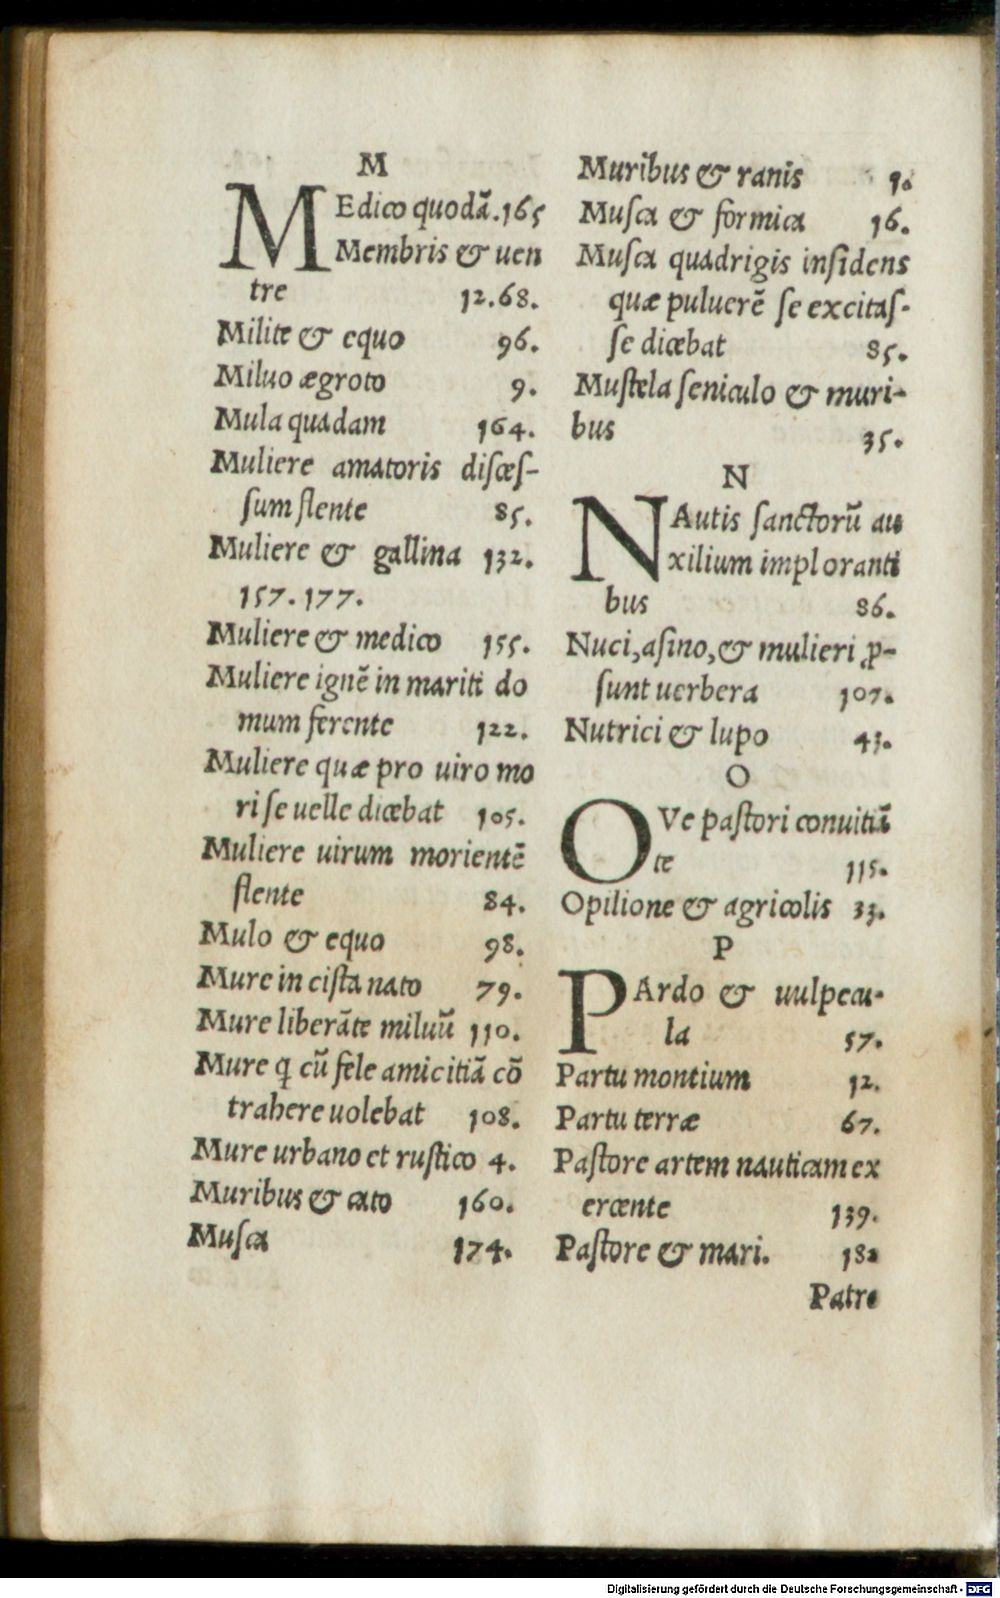 M
MEdico quodã.165
Membris & uen
tre 12.68.
Milite & equo 96.
Miluo ægroto 9.
Mula quadam 164.
Muliere amatoris discæs-
sum flente 85.
Muliere & gallina 132.
157.177.
Muliere & medico 155.
Muliere ignẽ in mariti do
mum ferente 122.
Muliere quæ pro uiro mo
ri se uelle dicebat 105.
Muliere uirum morientẽ
flente 84.
Mulo & equo 98.
Mure in cista nato 79.
Mure liberãte miluũ 110.
Mure q cũ fele amicitiã cõ
trahere uolebat 108.
Mure urbano et rustico 4.
Muribus & cato 160.
Musca 174.
Muribus & ranis
Musca & formica 16.
Musca quadrigis insidens
quæ puluerẽ se excitas-
se dicebat 85.
Mustela seniculo & muri-
bus 35.
N
NAutis sanctorũ au
xilium imploranti
bus 86.
Nuci, asino, & mulieri ꝓ-
sunt uerbera 107.
Nutrici & lupo 43.
O
OVe pastori conuitiã
te 115.
Opilione & agricolis 33.
P
PArdo & uulpecu-
la 57.
Partu montium 12.
Partu terræ 67.
Pastore artem nauticam ex
ercente 139.
Pastore & mari.
Patre
Digitalisierung gefördert durch die Deutsche Forschungsgemeinschaft - DFG